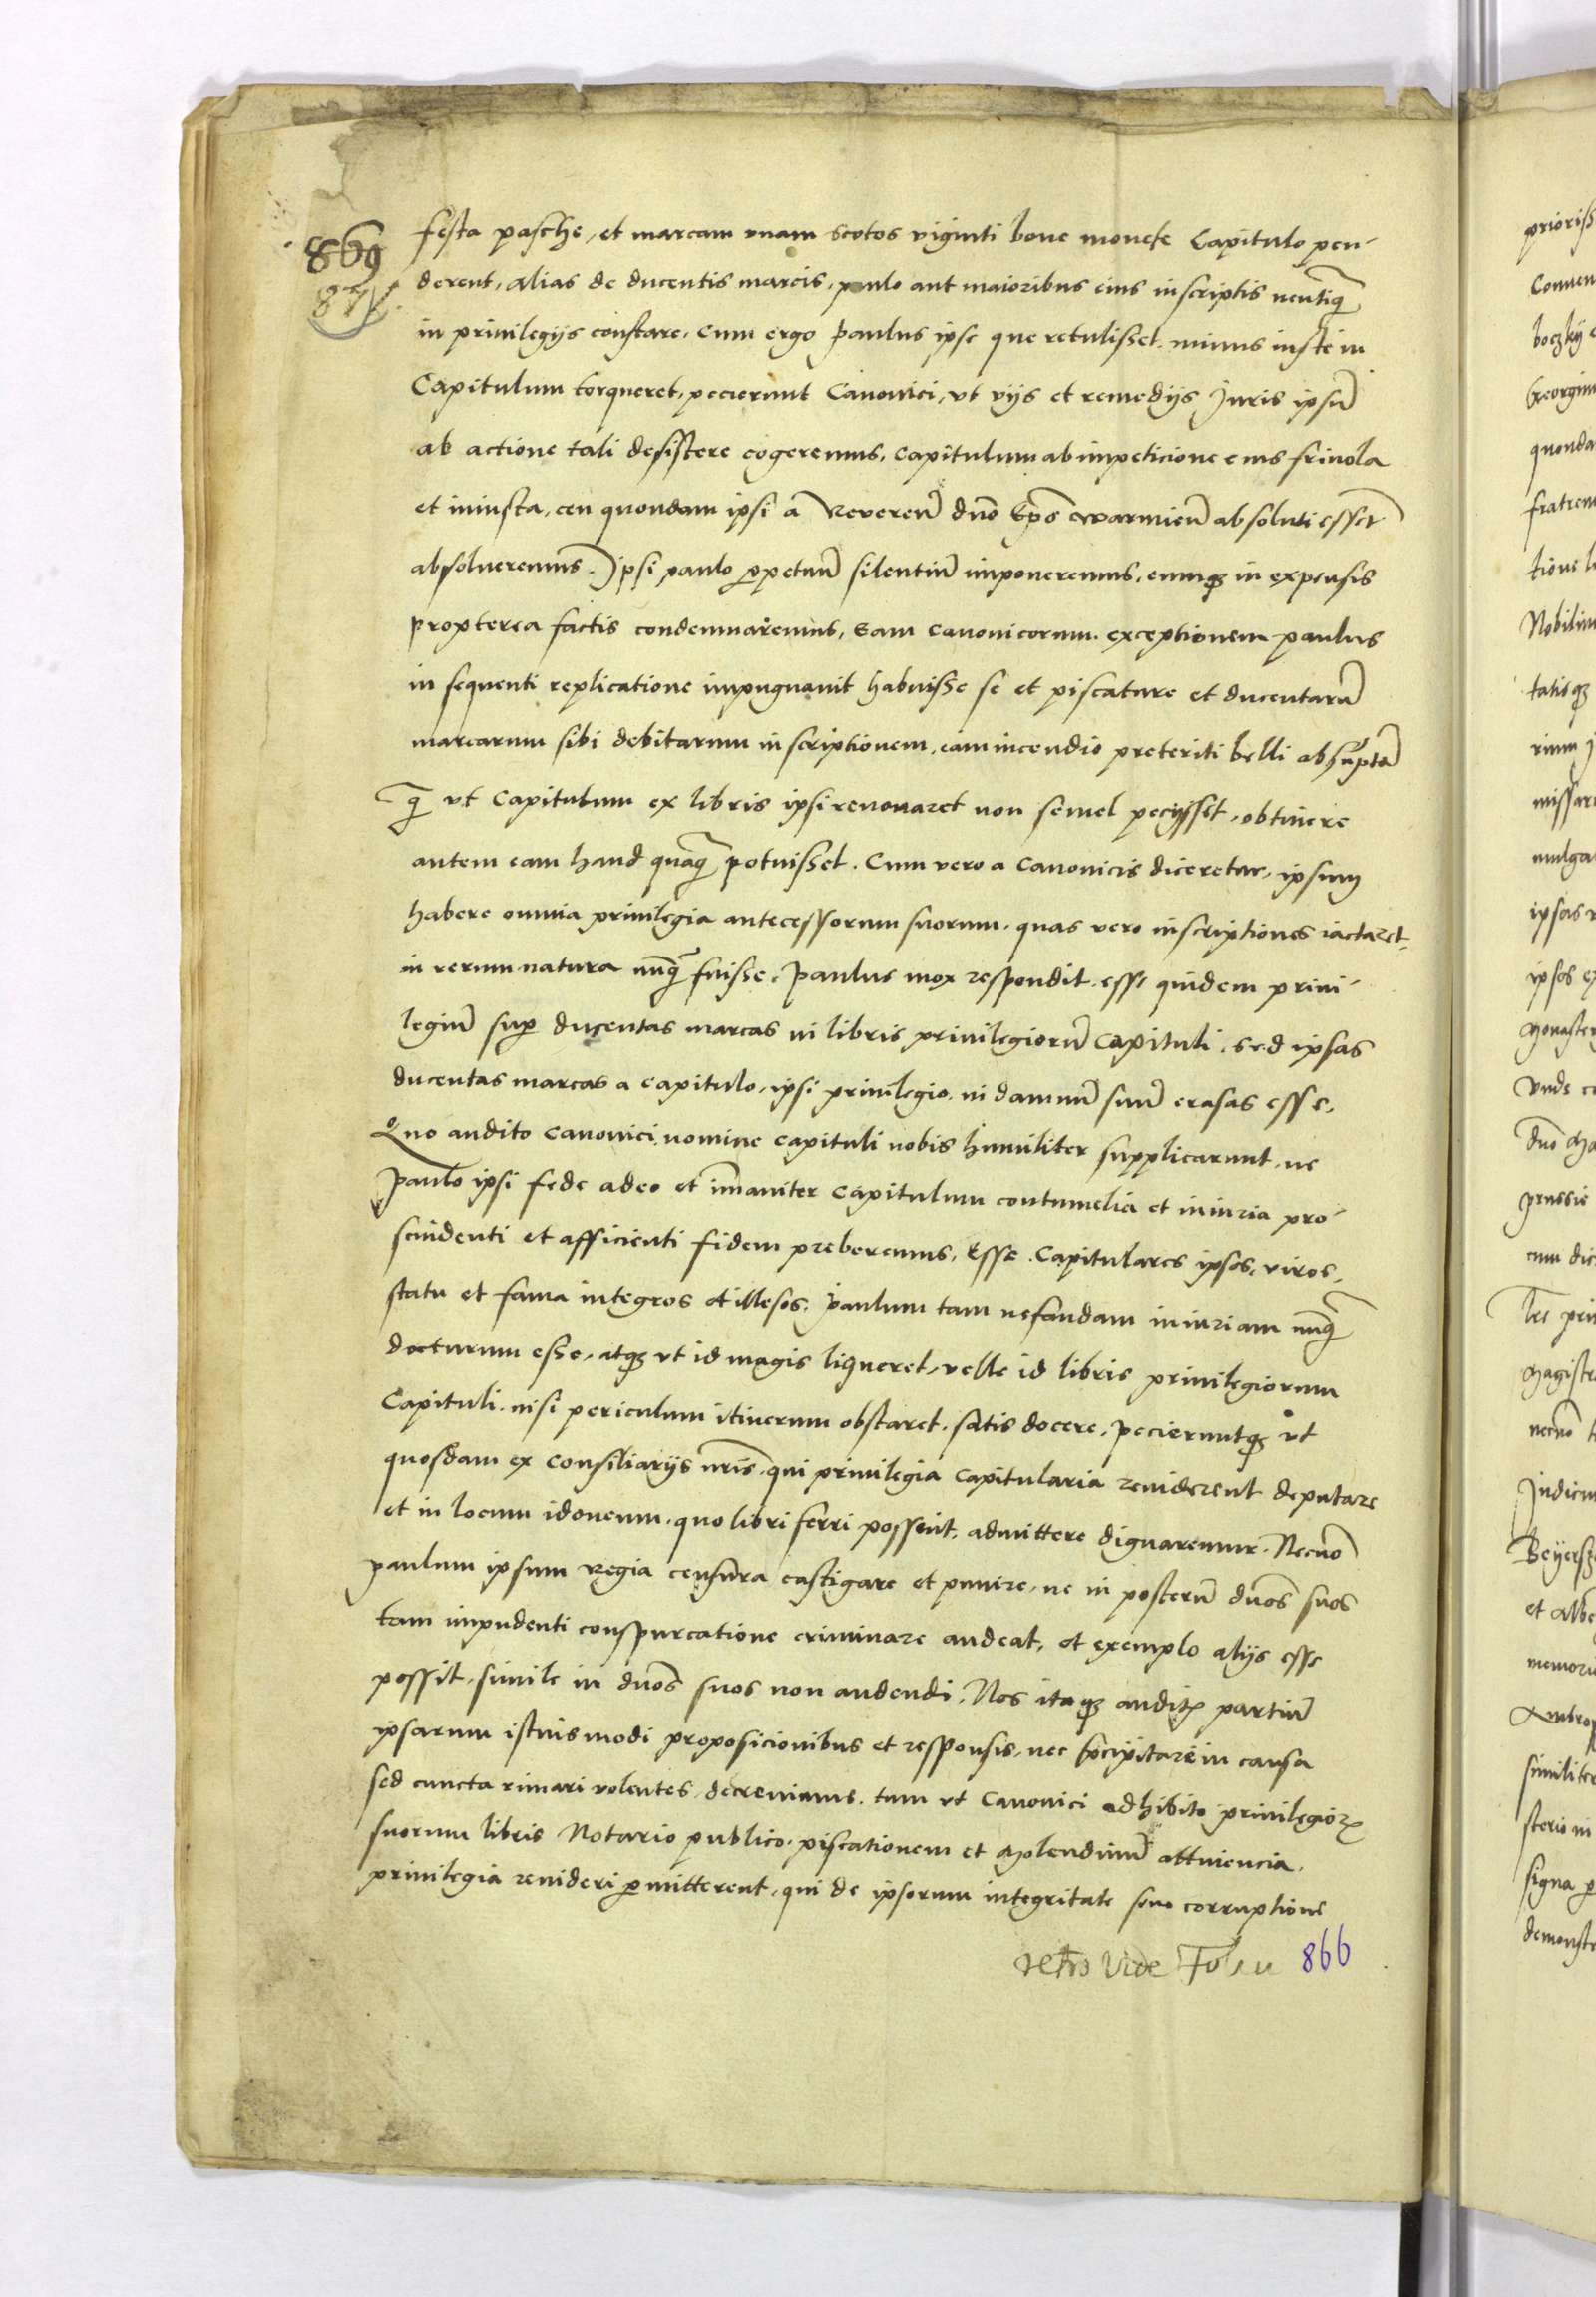 869
festa pasche, et marcam vnam scotos viginti bone monete Capitulo pen-
derent, Alias de ducentis marcis, paulo aut maioribus eius inscriptis neutiq̃
in priuilegijs constare. Cum ergo Paulus ipse que retulisset minus iuste in
Capitulum torqueret, pecierunt Canonici, vt vijs et remedijs Juris ipsũ
ab actione tali desistere cogeremus, Capitulum ab impeticione eius friuola
et iniusta, ceu quondam ipsi a Reuereñ dño Epõ Warmieñ absoluti essent
absolueremus. Ipsi paulo ꝑpetuũ silentiũ imponeremus, eumqꝫ in expensis
propterea factis condemnaremus, Eam canonicorum exceptionem paulus
in sequenti replicatione impugnauit habuisse se et piscature et ducentarũ
marcarum sibi debitarum inscriptionem, eam incendio preteriti belli absumptã
q̃ vt Capitulum ex libris ipsi renouaret non semel pecijsset, obtinere
autem eam haud quaq̃ potuisset. Cum vero a Canonicis diceretur, ipsum
habere omnia priuilegia antecessorum suorum, quas vero inscriptiones iactaret
in rerum natura nunq̃ fuisse. Paulus mox respondit, esse quidem priui-
legiũ suꝑ ducentas marcas in libris priuilegiorũ Capituli, sed ipsas
ducentas marcas a Capitulo, ipsi priuilegio, in damnũ suũ erasas esse,
Quo audito Canonici nomine Capituli nobis humiliter supplicarunt, ne
Paulo ipsi fede adeo et im̃aniter Capitulum contumelia et iniuria pro-
scindenti et afficienti fidem preberemus, Esse Capitulares ipsos, viros,
statu et fama integros et illesos, Paulum tam nefandam iniuriam nunq̃
docturum esse, atqꝫ vt id magis liqueret, velle id libris priuilegiorum
Capituli, nisi periculum itinerum obstaret, satis docere, pecieruntqꝫ vt
quosdam ex Consiliarijs nrĩs, qui priuilegia Capitularia reuiderent deputare
et in locum idoneum, quo libri ferri possent, admittere dignaremur. Necnõ
paulum ipsum Regia censura castigare et punire, ne in posterũ dños suos
tam impudenti conspurcatione criminare audeat, et exemplo alijs esse
possit, simile in dños suos non audendi, Nos itaqꝫ auditꝭ partiũ
ipsarum istiusmodi proposicionibus et responsis, nec p̃cipitare in causa
sed cuncta rimari volentes, decreuimus, tum vt Canonici adhibito priuilegioꝝ
suorum libris Notario publico, piscationem et molendinũ attinencia,
priuilegia reuideri ꝑmitterent, qui de ipsorum integritate seu corruptione
vide 866